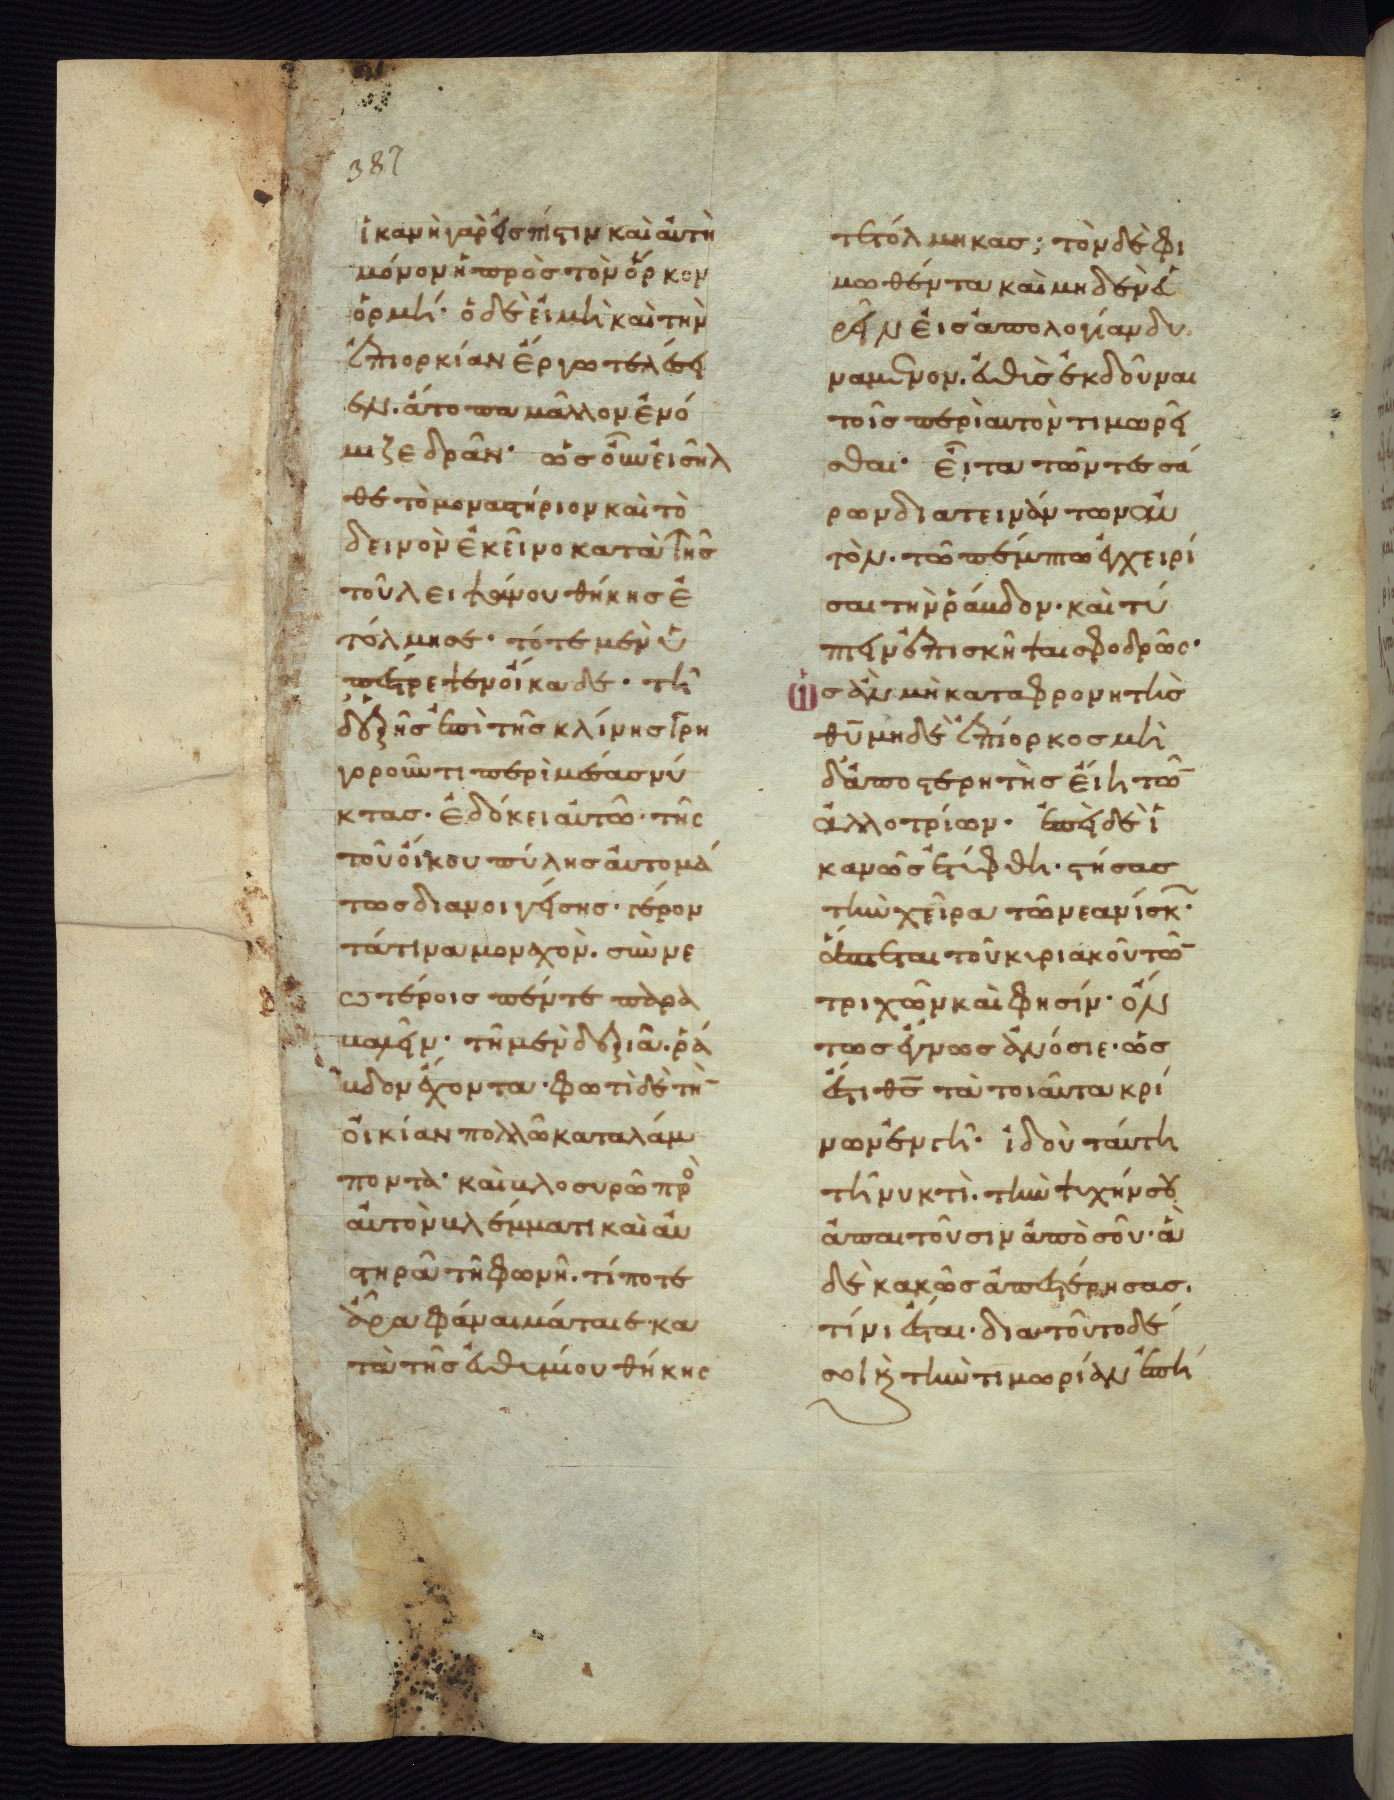 387
ἱκανὴ γὰρ εἰς πίστιν καὶ αὐτὴ
μόνον ἡ πρὸς τὸν ὅρκον
ὁρμή· ὁ δὲ εἰ μὴ καὶ τὴν
ἐπιορκίαν ἔργω τελέσει
εν. ἄτοπα μᾶλλον ἐνό
μιζε δρᾶν· ὡς οὖν εἰσῆλ
θε τὸ μοναστήριον καὶ τὸ
δεινὸν ἐκεῖνο κατὰ τῆς
τοῦ λειψάνου θήκης ἐ
τόλμησε· τότε μὲν ὑ
πέστρεψεν οἴκαδε· τῆ
δ' ἑξῆς ἐπὶ τῆς κλίνης γρη
γοροῦντι περὶ μέσας νύ
κτας· ἐδόκει αὐτῶ· τῆς
τοῦ οἴκου πύλης αὐτομά
τως διανοιγείσης· γέρον
τά τινα μοναχὸν. σὺν νε
ωτέροις πέντε παρα
μένειν· τῆ μὲν δεξιᾶ. ῥά
βδον ἔχοντα· φωτὶ δὲ τὴν
οἰκίαν πολλῶ καταλάμ
ποντα· καὶ βλοσυρῶ πρὸς
αὐτὸν βλέμματι καὶ αὐ
στηρᾶ τῆ φωνῆ. τί ποτε
ἄρα φάναι μάταιε· κα
τὰ τῆς εὐθυμίου θήκης
τετόλμηκας; τὸν δὲ φι
μωθέντα καὶ μηδὲν εὑ
ρεῖν εἰς ἀπολογίαν δυ
νάμενον. εὐθὺς ἐκδοῦναι
τοῖς περὶ αὐτὸν τιμωρεῖ
σθαι· εἶτα τῶν τεσσά
ρων διατεινάντων αὐ
τὸν. τῶ πέμπτω ἐγχειρί
σαι τὴν ῥάβδον· καὶ τύ
πτειν ἐπισκῆψαι σφοδρῶς·
ὡς ἂν μὴ καταφρονητὴς
θεοῦ μηδὲ ἐπίορκος μὴ
δ' ἀποστερητὴς εἴη τῶν
ἀλλοτρίων· ἐπεὶ δὲ ἱ
κανῶς ἐτύφθη· στήσας
τὴν χεῖρα τῶ νεανίσκω·
ἅπτεται τοῦ κυριακοῦ τῶν
τριχῶν καὶ φησίν· οὕ
τως ἔγνως ἀνόσιε· ὡς
ἔστι θεὸς τὰ τοιαῦτα κρί
νων ἐν γῆ· ἰδοὺ ταύτη
τῆ νυκτὶ. τὴν ψυχήν σου
ἀπαιτοῦσιν ἀπὸ σοῦ· ἃ
δὲ κακῶς ἀπεστέρησας.
τίνι ἔσται· διὰ τοῦτο δέ
σοι καὶ τὴν τιμωρίαν ἐπή